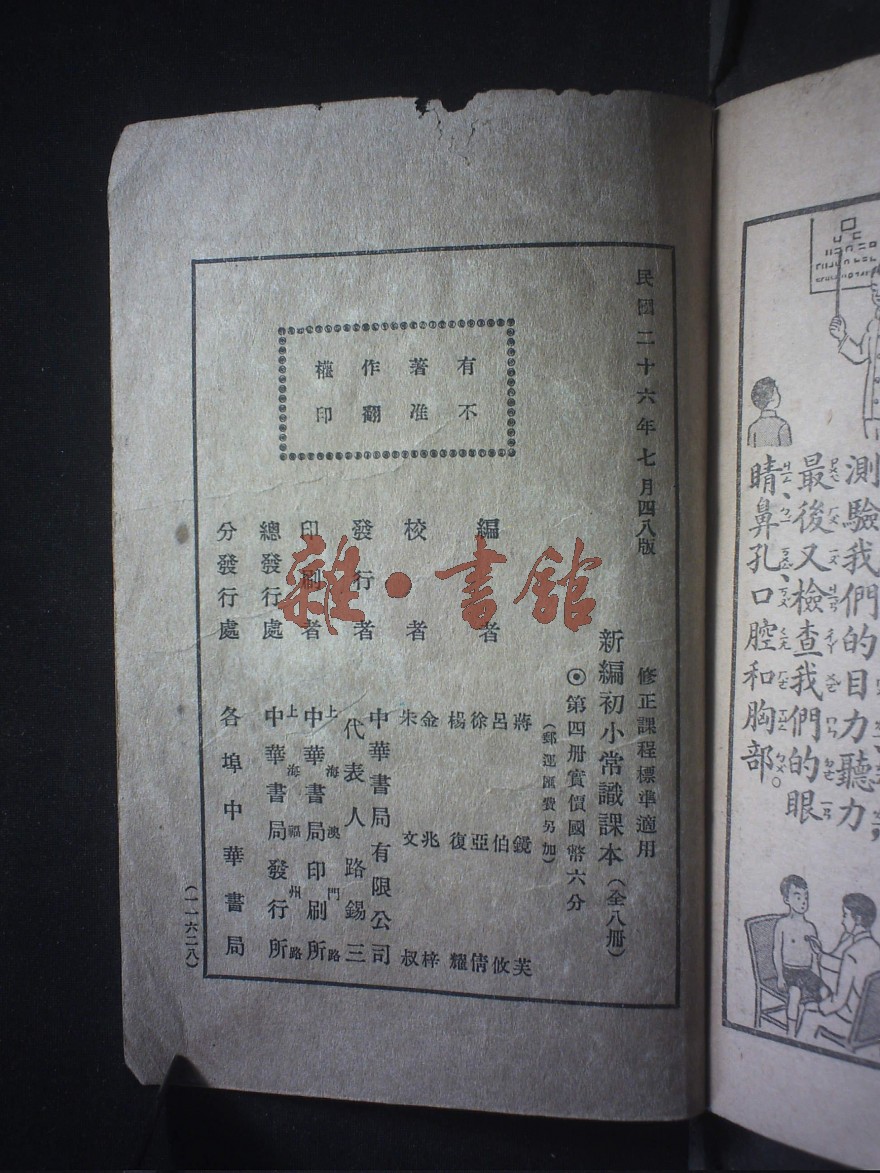 測驗我們的目力聽力
最後又檢查我們的眼
睛鼻孔口腔和胸部。
民國二十六年七月四八版
修正課程標準適用
新編初小常識課本（全八冊）
◎第四冊實價國幣六分
（郵運匯費另加）
有著作權
不准翻印
編者
蔣鏡芙
呂伯攸
徐亞倩
楊復耀
校者
金兆梓
朱文叔
發行者
中華書局有限公司
代表人路錫三
印刷者
上海澳門路
中華書局印刷所
總發行處
上海福州路
中華書局發行所
分發行處
各埠中華書局
（一一六二八）
雜·書館